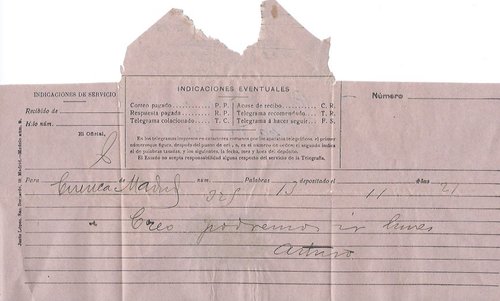 INDICACIONES DE SERVICIO
Recibido de
Hilo núm.
El Oficial,
INDICACIONES EVENTUALES
Correo pagado P. P.
Respuesta pagada R. P.
Telegrama colacionado T. C.
Acuse de recibo C. R.
Telegrama recomendado T. R.
Telegrama á hacer seguir F. S.
En los telegramas impresos en caracteres romanos por los aparatos telegráficos, el primer
número que figura, después del punto de origen, es el número de orden; el segundo indica
el de palabras tasadas, y los siguientes, la fecha, mes y hora del depósito.
El Estado no acepta responsabilidad alguna respecto del servicio de la Telegrafía.
Número
Para Cuenca Madrid núm. 328 Palabras 13 depositado el 11 á las 21
Creo podremos ir lunes
Arturo